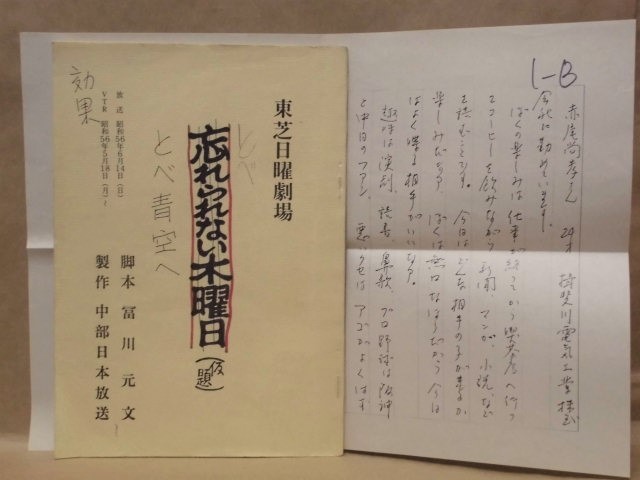 東芝日曜劇場
とべ
忘れられない木曜日
(仮題)
とべ青空へ
脚本 冨川元文
製作 中部日本放送
放送 昭和56年6月14日(日)
VTR 昭和56年5月18日(月)〜
効果
1-B
赤尾尚孝さん 24才 揖斐川電気工業株式
会社に勤めています。
ぼくの楽しみは仕事が終ってから喫茶店へ行って
コーヒーを飲みながら新聞、マンガ、小説など
を読むことです。今日はどんな相手の子が来るか
楽しみだなァ、ぼくは無口なほうだから
はよく喋る相手がいいなァ。
趣味は演劇、読書、鼻歌、プロ野球は阪神
と中日のファン。悪いクセは アゴがよくはず